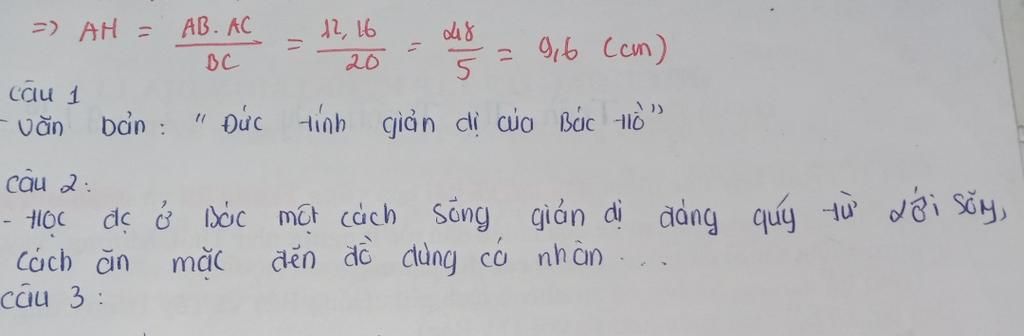 => AH = AB. AC / BC = 12, 16 / 20 = 48 / 5 = 9,6 (cm)
Câu 1
- Văn bản : " Đức tính giản dị của Bác Hồ "
Câu 2:
- Học đc ở Bác một cách sống giản dị đáng quý từ lối sống,
cách ăn mặc đến đồ dùng cá nhân ...
Câu 3 :